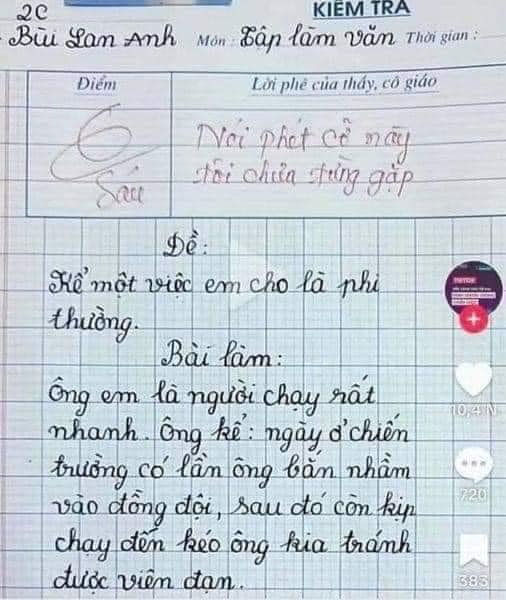 2C
KIỂM TRA
Bùi Lan Anh Môn: Tập làm văn Thời gian:
Điểm
Lời phê của thầy, cô giáo
6
Sáu
Nói phét cỡ này
tôi chưa từng gặp
Đề:
Kể một việc em cho là phi
thường.
Bài làm:
Ông em là người chạy rất
nhanh. Ông kể: ngày ở chiến
trường có lần ông bắn nhầm
vào đồng đội, sau đó còn kịp
chạy đến kéo ông kia tránh
được viên đạn.
TIKTOK
10,4N
720
383